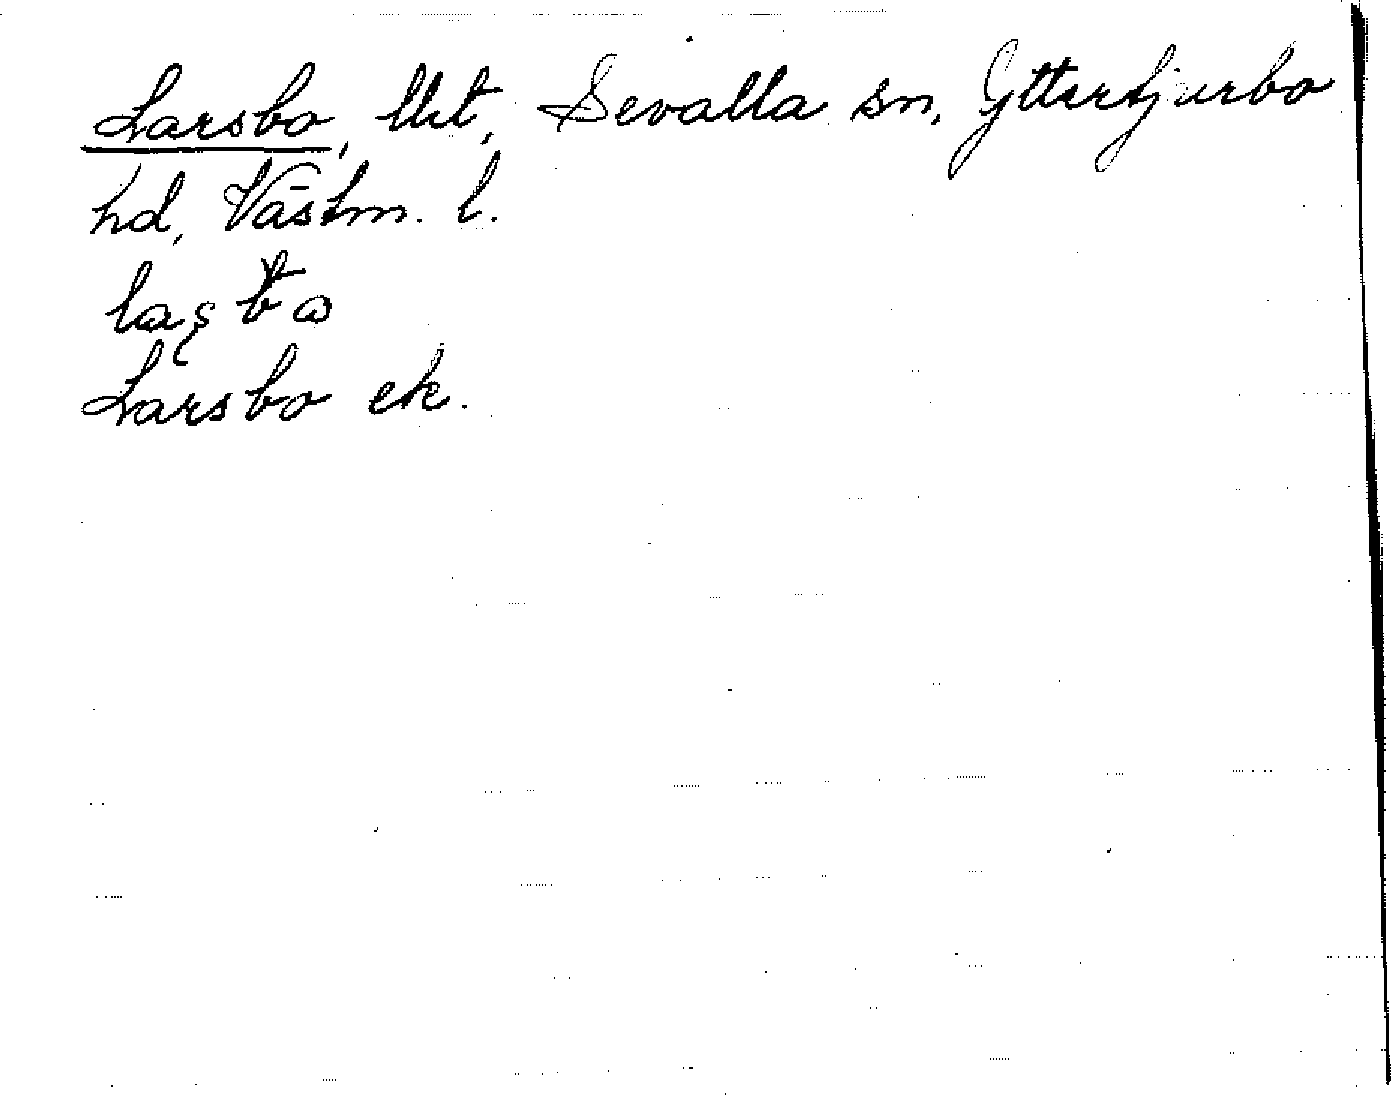 Larsbo, lht, Sevalla sn, Yttertjurbo
hd, Västm. l.
Larsbo ek.